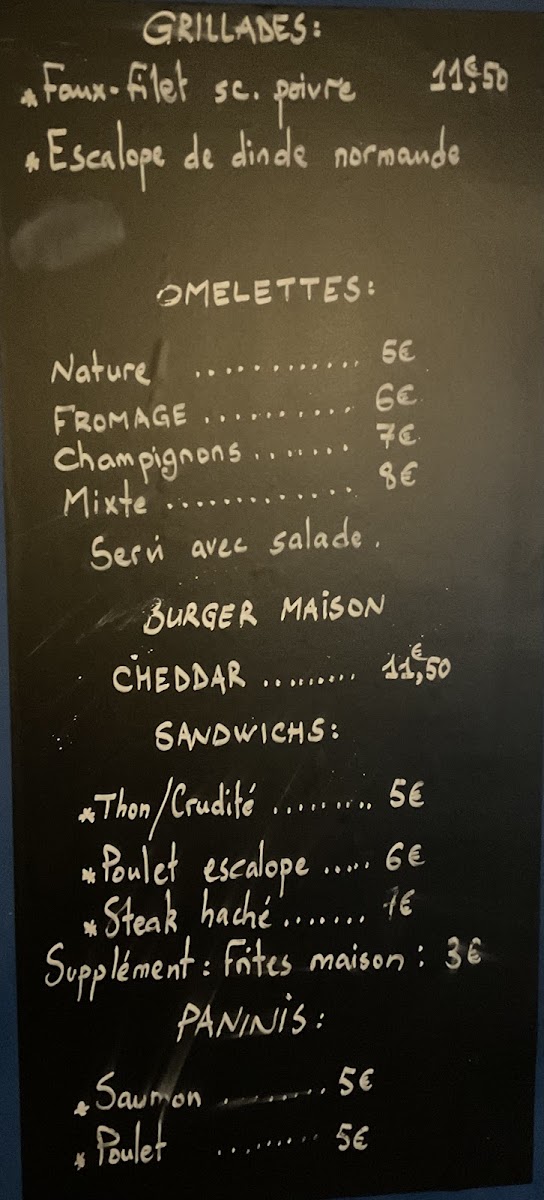 GRILLADES:
* Faux-Filet sc. poivre 11€,50
* Escalope de dinde normande
OMELETTES:
Nature ............ 5€
FROMAGE .......... 6€
Champignons ....... 7€
Mixte ............. 8€
Servi avec salade.
BURGER MAISON
CHEDDAR ......... 11€,50
SANDWICHS:
* Thon/Crudité ......... 5€
* Poulet escalope ..... 6€
* Steak haché ....... 7€
Supplément : Frites maison : 3€
PANINIS:
* Saumon ......... 5€
* Poulet ......... 5€